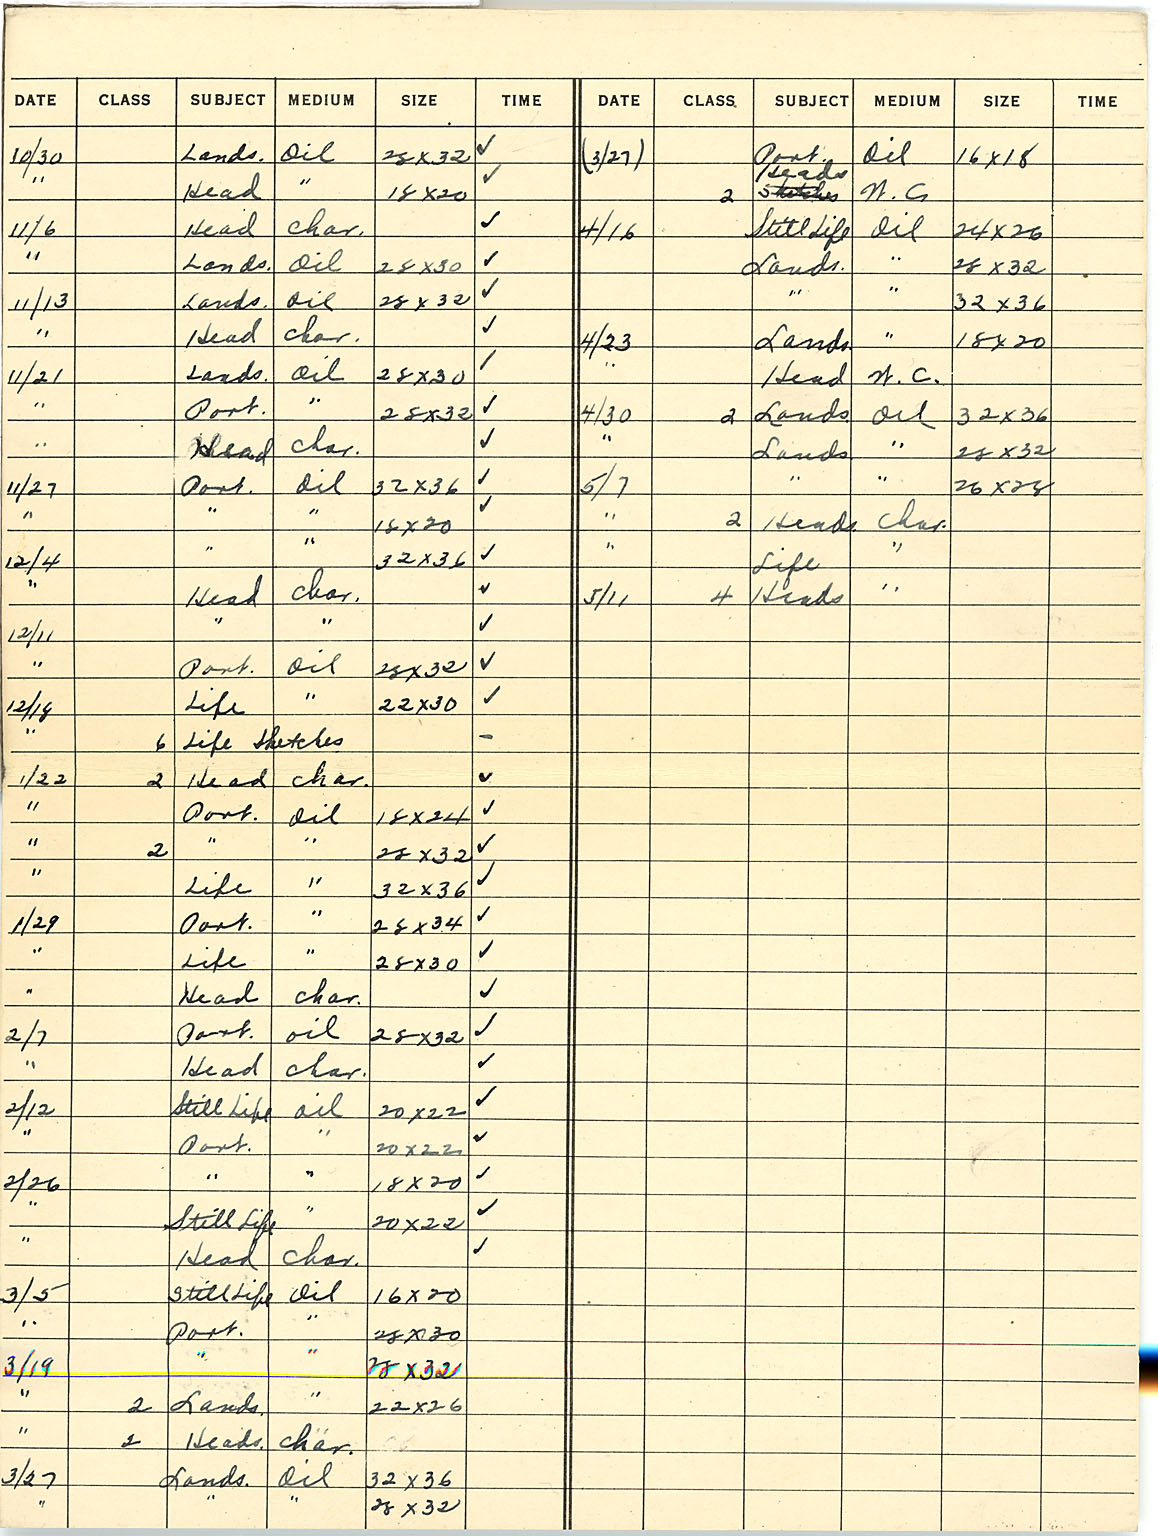 DATE CLASS SUBJECT MEDIUM SIZE TIME
10/30 Lands. Oil 28x32 ✓
" Head " 18x20 ✓
11/6 Head char. ✓
" Lands. Oil 28x30 ✓
11/13 Lands. Oil 28x32 ✓
" Head char. ✓
11/21 Lands. Oil 28x30 ✓
" Port. " 28x32 ✓
" Head char. ✓
11/27 Port. Oil 32x36 ✓
" " " 18x20 ✓
12/4 " " 32x36 ✓
" Head char. ✓
12/11 " " ✓
" Port. Oil 28x32 ✓
12/18 Life " 22x30 ✓
" 6 Life Sketches -
1/22 2 Head char. ✓
" Port. Oil 18x24 ✓
" 2 " " 28x32 ✓
" Life " 32x36 ✓
1/29 Port. " 28x34 ✓
" Life " 28x30 ✓
" Head char. ✓
2/7 Port. oil 28x32 ✓
" Head char. ✓
2/12 Still Life oil 20x22 ✓
" Port. " 20x22 ✓
2/26 " " 18x20 ✓
" Still Life " 20x22 ✓
" Head char. ✓
3/5 Still Life Oil 16x20
" Port. " 28x30
3/19 " " 28x32
" 2 Lands. " 22x26
" 2 Heads. char.
3/27 Lands. Oil 32x36
" " " 28x32
DATE CLASS SUBJECT MEDIUM SIZE TIME
(3/27) Port. Oil 16x18
Heads
2 Sketches W.C.
4/16 Still Life Oil 24x26
Lands. " 28x32
" " 32x36
4/23 Lands. " 18x20
" Head W.C.
4/30 2 Lands. Oil 32x36
" Lands. " 28x32
5/7 " " 26x28
" 2 Heads char.
" Life "
5/11 4 Heads "